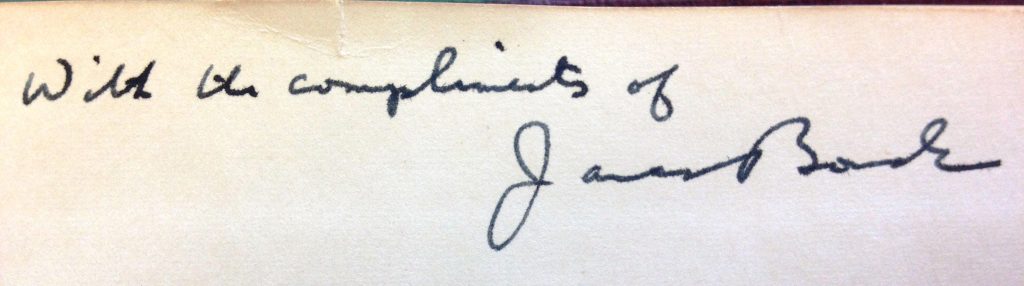 With the compliments of
James Bond